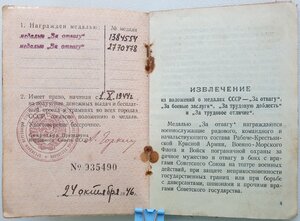 1. Награжден медалью: № медали
медалью „За отвагу" 1384554
медалью „За отвагу" 2770478
2. Имеет право, начиная с 1. X 1944г.
на получение денежных выдач и бесплатный
проезд в трамвае во всех городах
СССР, согласно положению о медалях.
Удостоверение бессрочно.
Секретарь Президиума
А. Горкин
№ 935490
24 октября 46.
ИЗВЛЕЧЕНИЕ
из положений о медалях СССР—„За отвагу",
„За боевые заслуги", „За трудовую доблесть"
и „За трудовое отличие".
Медалью „За отвагу" награждаются
военнослужащие рядового, командного и
начальствующего состава Рабоче-Крестьянской
Красной Армии, Военно-Морского
Флота и Войск пограничной охраны за
личное мужество и отвагу в боях с врагами
Советского Союза на театре военных
действий, при защите неприкосновенности
государственных границ или при борьбе
с диверсантами, шпионами и прочими врагами
Советского государства.